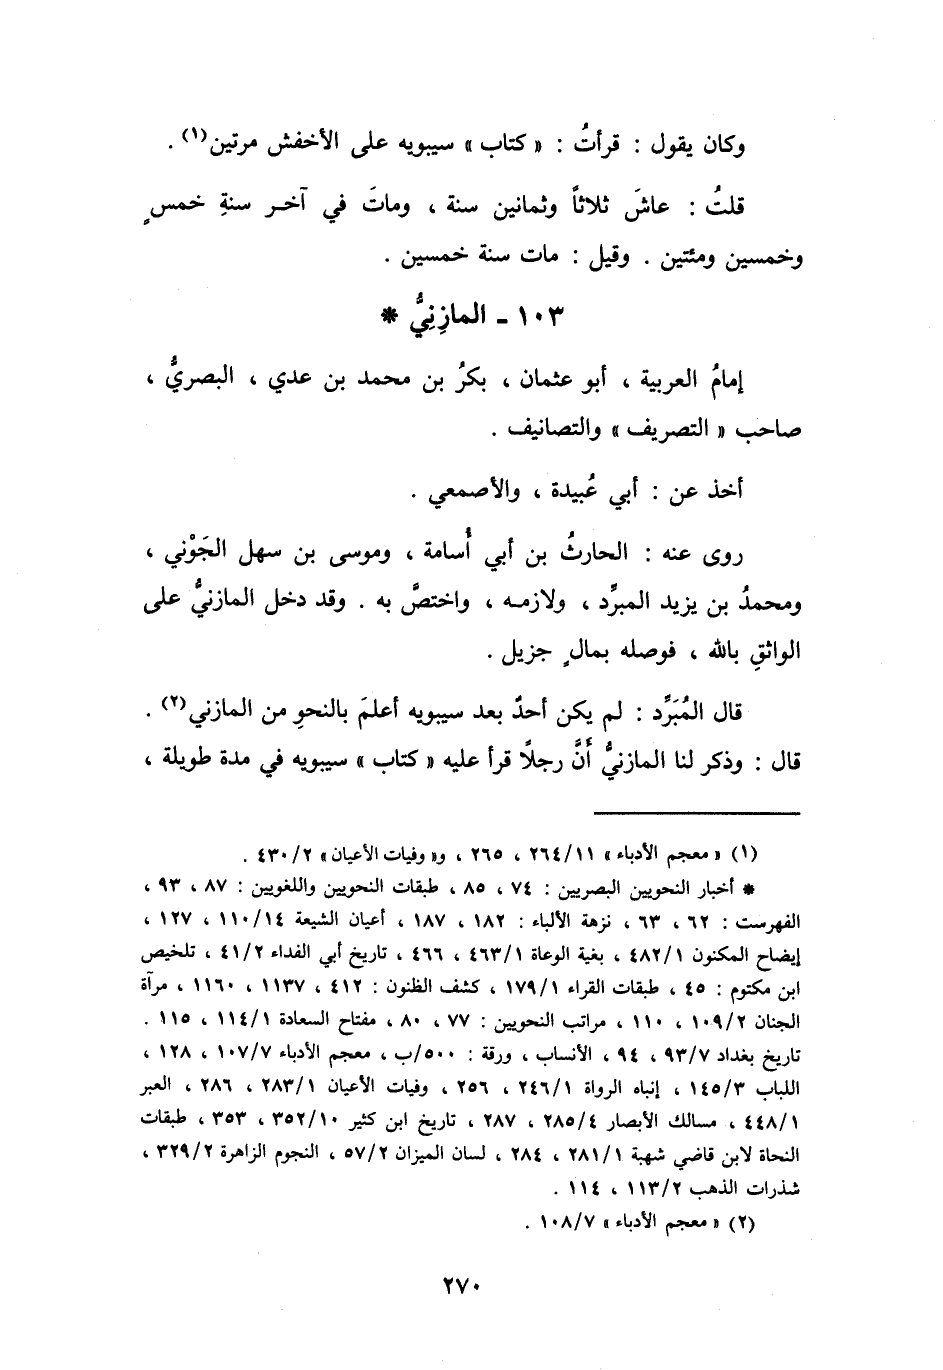 وكان يقول : قرأتُ : « كتاب » سيبويه على الأخفش مرتين(١) .
قلتُ : عاشَ ثلاثاً وثمانين سنة ، وماتَ في آخر سنةِ خمسٍ
وخمسين ومئتين . وقيل : مات سنة خمسين .
١٠٣ - المازِنِيُّ *
إمامُ العربية ، أبو عثمان ، بكرُ بن محمد بن عدي ، البصريُّ ،
صاحب « التصريف » والتصانيف .
أخذ عن : أبي عُبيدة ، والأصمعي .
روى عنه : الحارثُ بن أبي أُسامة ، وموسى بن سهل الجَوْني ،
ومحمدُ بن يزيد المبرِّد ، ولازمه ، واختصَّ به . وقد دخل المازنيُّ على
الواثقِ بالله ، فوصله بمالٍ جزيل .
قال المُبَرِّد : لم يكن أحدٌ بعد سيبويه أعلمَ بالنحوِ من المازني(٢) .
قال : وذكر لنا المازنيُّ أَنَّ رجلًا قرأ عليه « كتاب » سيبويه في مدة طويلة ،
(١) « معجم الأدباء » ٢٦٤/١١ ، ٢٦٥ ، و« وفيات الأعيان » ٤٣٠/٢ .
* أخبار النحويين البصريين : ٧٤ ، ٨٥ ، طبقات النحويين واللغويين : ٨٧ ، ٩٣ ،
الفهرست : ٦٢ ، ٦٣ ، نزهة الألباء : ١٨٢ ، ١٨٧ ، أعيان الشيعة ١١٠/١٤ ، ١٢٧ ،
إيضاح المكنون ٤٨٢/١ ، بغية الوعاة ٤٦٣/١ ، ٤٦٦ ، تاريخ أبي الفداء ٤١/٢ ، تلخيص
ابن مكتوم : ٤٥ ، طبقات القراء ١٧٩/١ ، كشف الظنون : ٤١٢ ، ١١٣٧ ، ١١٦٠ ، مرآة
الجنان ١٠٩/٢ ، ١١٠ ، مراتب النحويين : ٧٧ ، ٨٠ ، مفتاح السعادة ١١٤/١ ، ١١٥ .
تاريخ بغداد ٩٣/٧ ، ٩٤ ، الأنساب ، ورقة : ٥٠٠/ب ، معجم الأدباء ١٠٧/٧ ، ١٢٨ ،
اللباب ١٤٥/٣ ، إنباه الرواة ٢٤٦/١ ، ٢٥٦ ، وفيات الأعيان ٢٨٣/١ ، ٢٨٦ ، العبر
٤٤٨/١ ، مسالك الأبصار ٢٨٥/٤ ، ٢٨٧ ، تاريخ ابن كثير ٣٥٢/١٠ ، ٣٥٣ ، طبقات
النحاة لابن قاضي شهبة ٢٨١/١ ، ٢٨٤ ، لسان الميزان ٥٧/٢ ، النجوم الزاهرة ٣٢٩/٢ ،
شذرات الذهب ١١٣/٢ ، ١١٤ .
(٢) « معجم الأدباء » ١٠٨/٧ .
٢٧٠